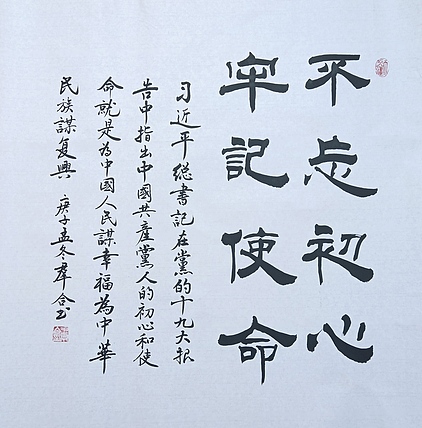 不忘初心
牢記使命
习近平總書記在黨的十九大报
告中指出中國共產黨人的初心和使
命就是為中國人民謀幸福為中華
民族謀复興 庚子孟冬羣合书